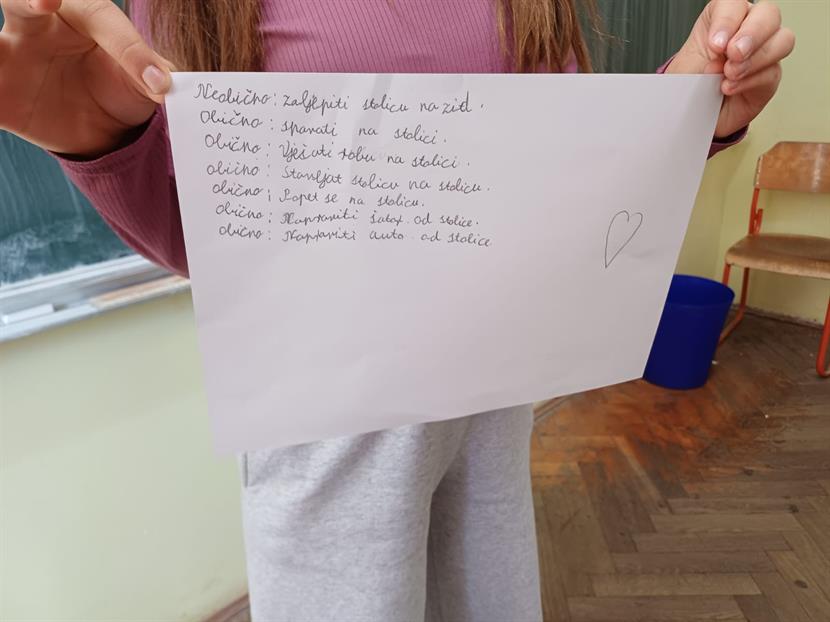 Neobično: zaljepiti stolicu na zid.
Obično: spavati na stolici.
Obično: Vješati robu na stolici.
obično: Stavljat stolicu na stolicu.
obično: Popet se na stolicu.
obično: Napraviti šator od stolice.
obično: Napraviti auto od stolice